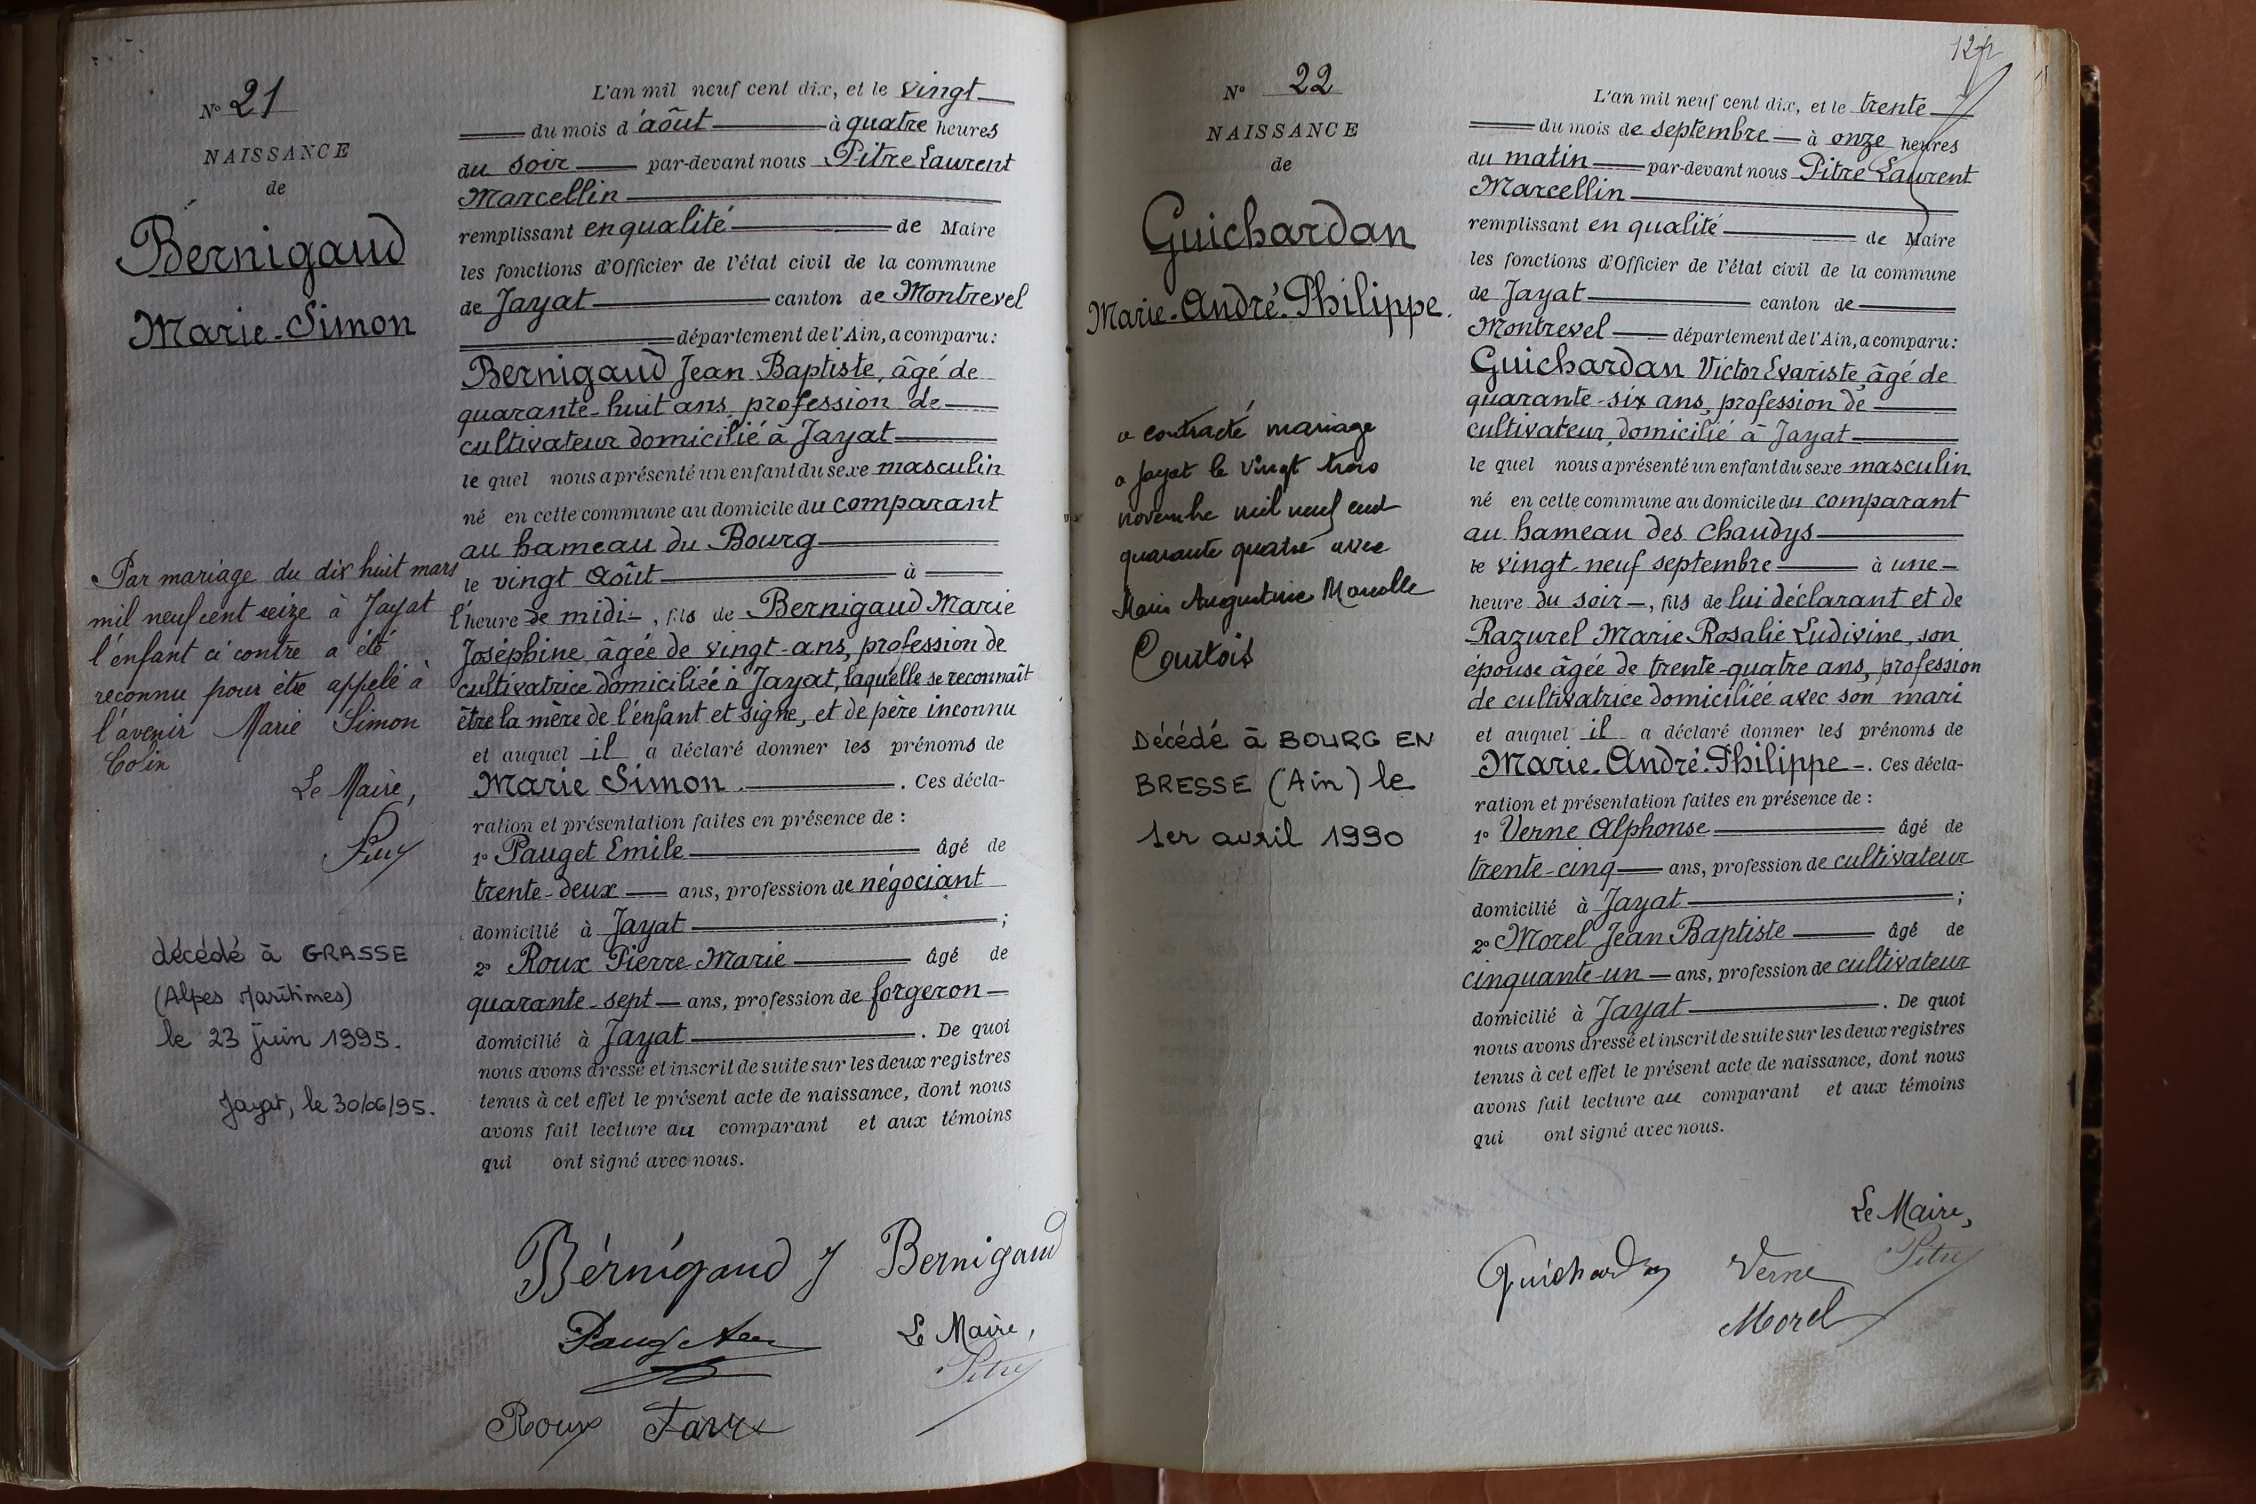 No 21
NAISSANCE
de
Bernigaud
Marie-Simon
Par mariage du dix huit mars
mil neuf cent seize à Jayat
l'enfant ci contre a été
reconnu pour être appelé à
l'avenir Marie Simon
Colin
Le Maire,
décédé à GRASSE
(Alpes Maritimes)
le 23 juin 1995.
Jayat, le 30/06/95.
L'an mil neuf cent dix, et le vingt
du mois d'août à quatre heures
du soir par-devant nous Pitre Laurent
Marcellin
remplissant en qualité de Maire
les fonctions d'Officier de l'état civil de la commune
de Jayat canton de Montrevel
département de l'Ain, a comparu:
Bernigaud Jean Baptiste, âgé de
quarante-huit ans, profession de
cultivateur domicilié à Jayat
le quel nous a présenté un enfant du sexe masculin
né en cette commune au domicile du comparant
au hameau du Bourg
le vingt août à
l'heure de midi, fils de Bernigaud Marie
Joséphine âgée de vingt-ans, profession de
cultivatrice domiciliée à Jayat, laquelle se reconnaît
être la mère de l'enfant et signe, et de père inconnu
et auquel il a déclaré donner les prénoms de
Marie Simon. Ces décla-
ration et présentation faites en présence de :
1o Pauget Emile âgé de
trente-deux ans, profession de négociant
domicilié à Jayat ;
2o Roux Pierre Marie âgé de
quarante-sept ans, profession de forgeron
domicilié à Jayat. De quoi
nous avons dressé et inscrit de suite sur les deux registres
tenus à cet effet le présent acte de naissance, dont nous
avons fait lecture au comparant et aux témoins
qui ont signé avec nous.
Bérnigaud J Bernigaud
Le Maire,
Pitre
Roux
No 22
NAISSANCE
de
Guichardan
Marie-André-Philippe.
a contracté mariage
a Jayat le vingt trois
novembre mil neuf cent
quarante quatre avec
Marie Augustine Marcelle
Courtois
Décédé à BOURG EN
BRESSE (Ain) le
1er avril 1990
L'an mil neuf cent dix, et le trente
du mois de septembre à onze heures
du matin par-devant nous Pitre Laurent
Marcellin
remplissant en qualité de Maire
les fonctions d'Officier de l'état civil de la commune
de Jayat canton de
Montrevel département de l'Ain, a comparu:
Guichardan Victor Evariste, âgé de
quarante-six ans, profession de
cultivateur, domicilié à Jayat
le quel nous a présenté un enfant du sexe masculin
né en cette commune au domicile du comparant
au hameau des Chaudys
le vingt-neuf septembre à une
heure du soir, fils de lui déclarant et de
Razurel Marie Rosalie Ludivine, son
épouse âgée de trente-quatre ans, profession
de cultivatrice domiciliée avec son mari
et auquel il a déclaré donner les prénoms de
Marie-André-Philippe. Ces décla-
ration et présentation faites en présence de :
1o Verne Alphonse âgé de
trente-cinq ans, profession de cultivateur
domicilié à Jayat ;
2o Morel Jean Baptiste âgé de
cinquante-un ans, profession de cultivateur
domicilié à Jayat. De quoi
nous avons dressé et inscrit de suite sur les deux registres
tenus à cet effet le présent acte de naissance, dont nous
avons fait lecture au comparant et aux témoins
qui ont signé avec nous.
Le Maire,
Guichardan Verne Pitre
Morel